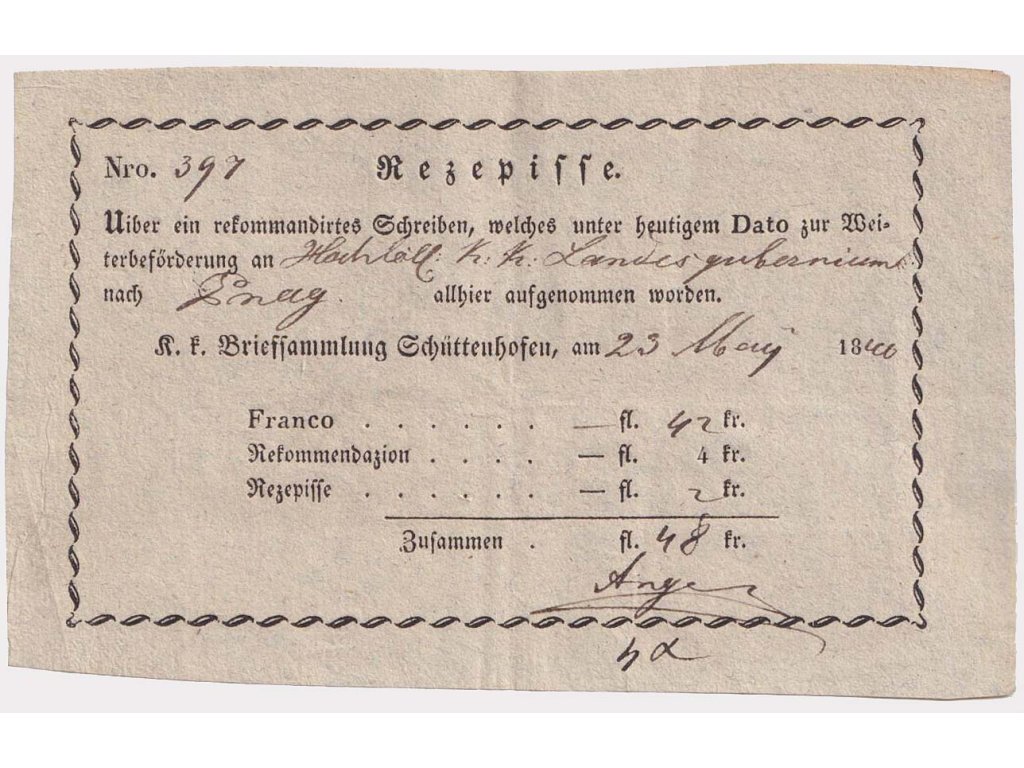 Nro. 397 Rezepisse.
Uiber ein rekommandirtes Schreiben, welches unter heutigem Dato zur Wei-
terbeförderung an Hochlöbl: K: K: Landesgubernium
nach Prag. allhier aufgenommen worden.
K. k. Briefsammlung Schüttenhofen, am 23 May 1840
Franco . . . . . . — fl. 42 kr.
Rekommendazion . . . . — fl. 4 kr.
Rezepisse . . . . . . — fl. 2 kr.
Zusammen . fl. 48 kr.